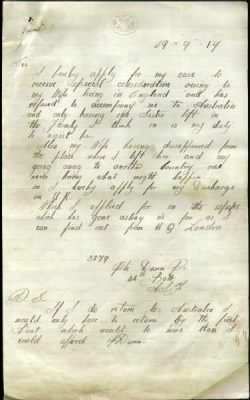 19-9-19
Sir
I hereby apply for my case to
receive special consideration owing to
my Wife being in England and has
refused to accompany me to Australia
and only having one Sister left in
the family I think it is my duty
to assist her.
Also my Wife having disappeared from
the place where I left her and my
going away to another Country one
never knows what might happen
so I hereby apply for my Discharge
in U.K.
Which I applied for on the
which has gone astray as far as I
can find out from H Q London.
3279
Pte Dann P.
44 Batt
A.I.F.
P.S.
If I do return to Australia I
would only have to return by the first
Boat which would be more than I
could afford PDann.